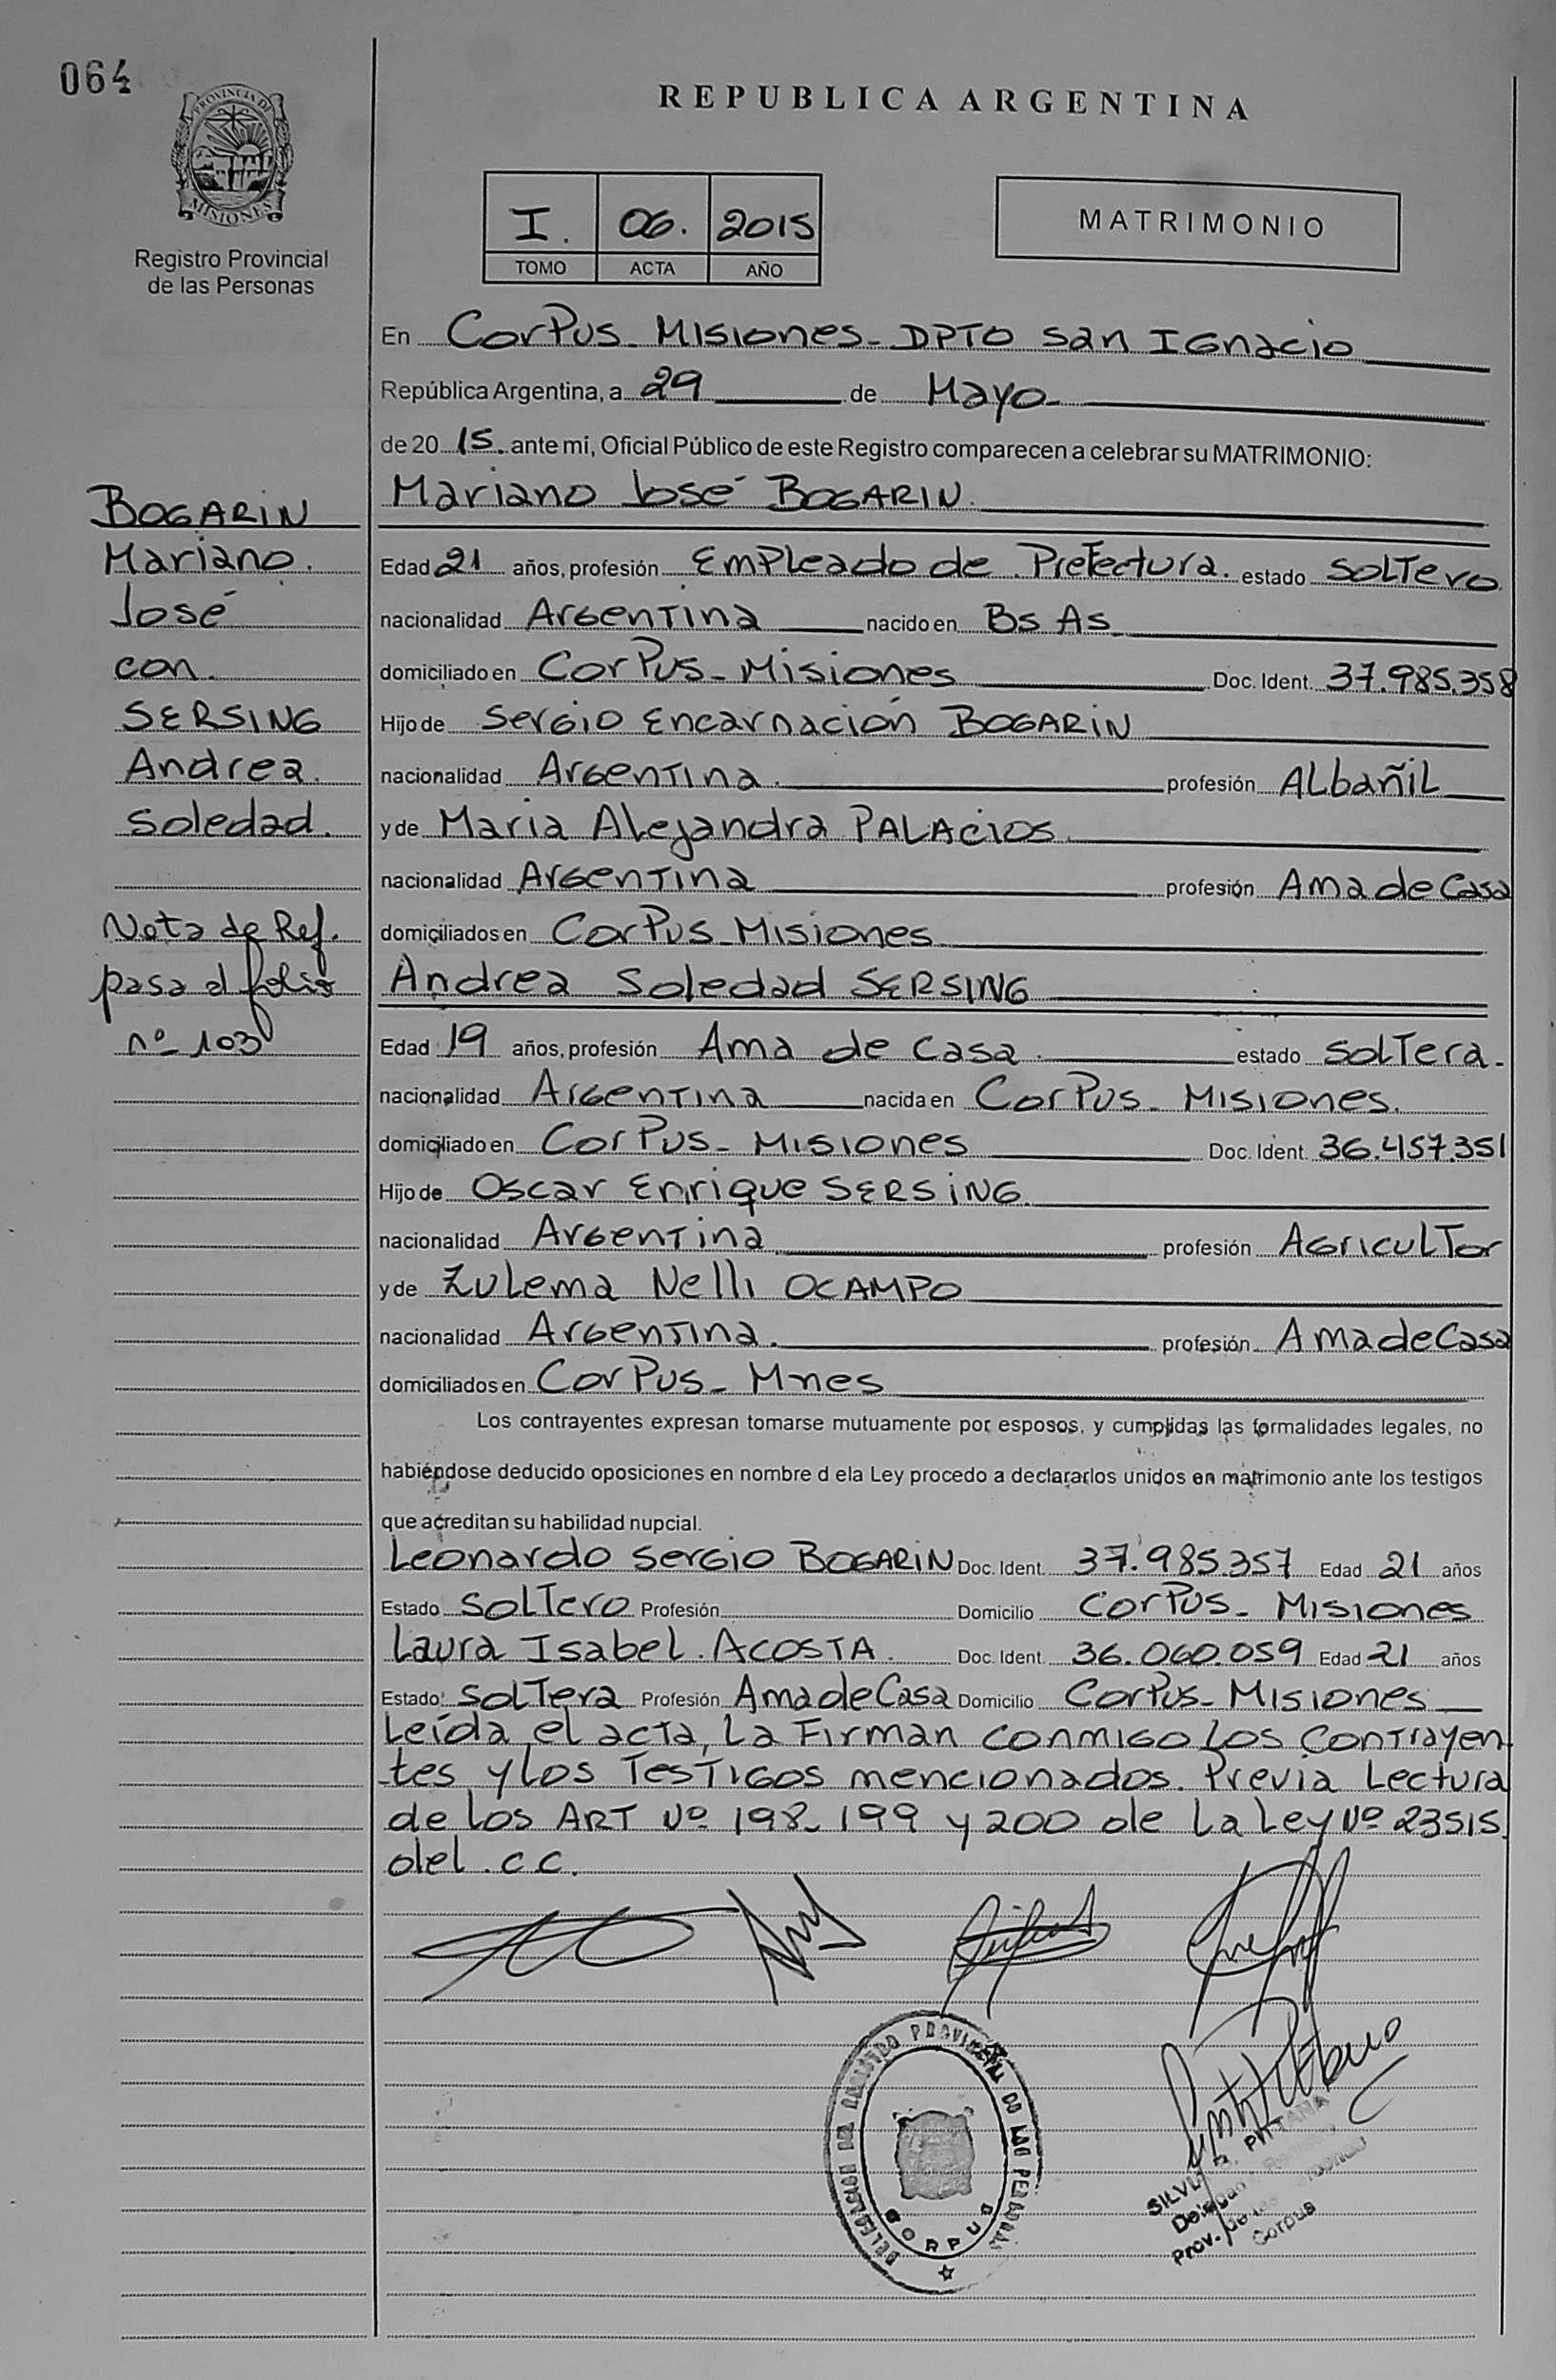 064
PROVINCIA DE
MISIONES
Registro Provincial
de las Personas
REPUBLICA ARGENTINA
I. 06. 2015
TOMO ACTA AÑO
MATRIMONIO
BOGARIN
Mariano.
José
con.
SERSING
Andrea.
Soledad.
Nota de Ref.
pasa al folio
nº 103
En Corpus - Misiones - DPTO San Ignacio
República Argentina, a 29 de Mayo
de 20 15. ante mí, Oficial Público de este Registro comparecen a celebrar su MATRIMONIO:
Mariano José BOGARIN.
Edad 21 años, profesión Empleado de Prefectura. estado Soltero
nacionalidad Argentina nacido en Bs As
domiciliado en Corpus - Misiones Doc. Ident. 37.985.358
Hijo de Sergio Encarnación BOGARIN
nacionalidad Argentina. profesión Albañil
y de Maria Alejandra PALACIOS.
nacionalidad Argentina profesión Ama de Casa
domiciliados en Corpus - Misiones
Andrea Soledad SERSING
Edad 19 años, profesión Ama de Casa. estado Soltera.
nacionalidad Argentina nacida en Corpus - Misiones.
domiciliado en Corpus - Misiones Doc. Ident. 36.457.351
Hijo de Oscar Enrique SERSING.
nacionalidad Argentina profesión Agricultor
y de Zulema Nelli OCAMPO
nacionalidad Argentina. profesión Ama de Casa
domiciliados en Corpus - Mnes
Los contrayentes expresan tomarse mutuamente por esposos, y cumplidas las formalidades legales, no
habiéndose deducido oposiciones en nombre d ela Ley procedo a declararlos unidos en matrimonio ante los testigos
que acreditan su habilidad nupcial.
Leonardo Sergio BOGARIN Doc. Ident. 37.985.357 Edad 21 años
Estado Soltero Profesión Domicilio Corpus - Misiones
Laura Isabel ACOSTA. Doc. Ident. 36.060.059 Edad 21 años
Estado Soltera Profesión Ama de Casa Domicilio Corpus - Misiones
Leída el acta, La Firman conmigo Los Contrayen
tes y los Testigos mencionados. Previa Lectura
de los ART Nº 198 - 199 y 200 de La Ley Nº 23515
del c.c.
DELEGACION DEL REGISTRO PROVINCIAL DE LAS PERSONAS
CORPUS
Corpus